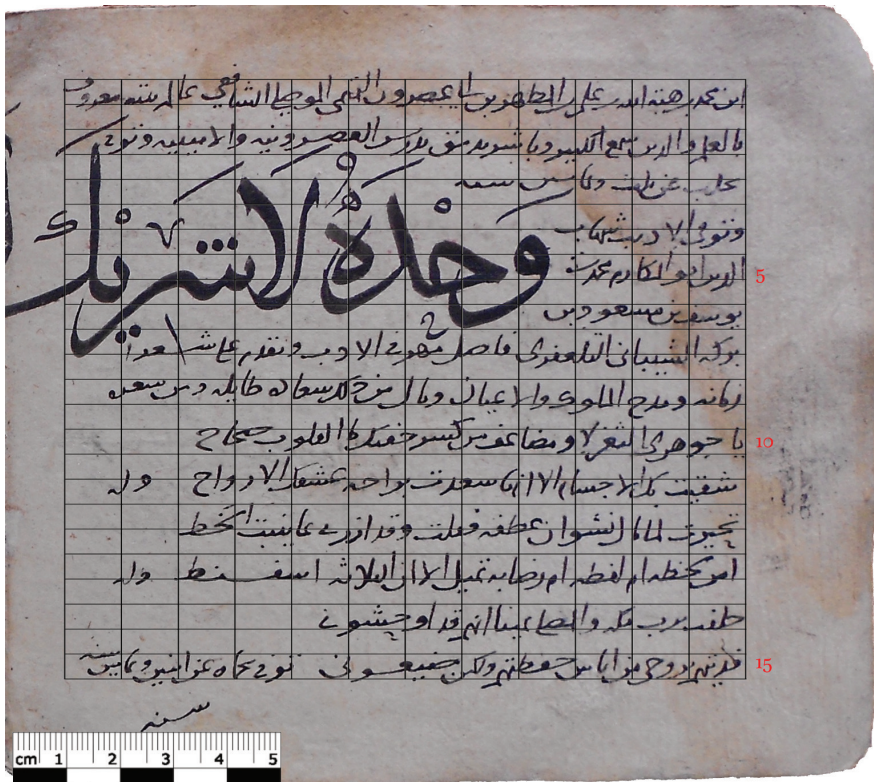 ابن محمد بن هبة الله بن علي بن المطهر بن ابي عصرون التميمي الموصلي الشافعي عالم بيته معروف
بالعلم والدين سمع الكثير وبا شر بدمشق تدريس العصرونية والامينيه وتوفي
بحلب عن ثلث وثمانين سنه
وتوفي الاديب شهاب
الدين ابو المكارم محمد بن
يوسف بن مسعود بن
وحده لا شريك
بركه الشيباني التلعفري فاضل مهر في الادب وتقدم على شعرا
زمانه ومدح الملوك والاعيان ومن شعره
يا جوهري الثغر لا ومضاعف من كسر جفنك ما القلوب صحاح
شقيت بك الاجسام الا انها سعدت براحة عشقك الارواح وله
تحيرت لما مال نشوان عطفه فقلت وقد ازرى بما ينبت الخط
امن لحظه ام لفظه ام رضابه تميل الا ان الثلاثه اسفنط وله
حلفت برب مكه والمصلى يمينا انهم قد اوحشوني
فديتهم بروحي من اناس حفظتهم ولكن ضيعوني توفي بحماه عن اثنين وثمانين سنه
سنه
cm 1 2 3 4 5
5
10
15